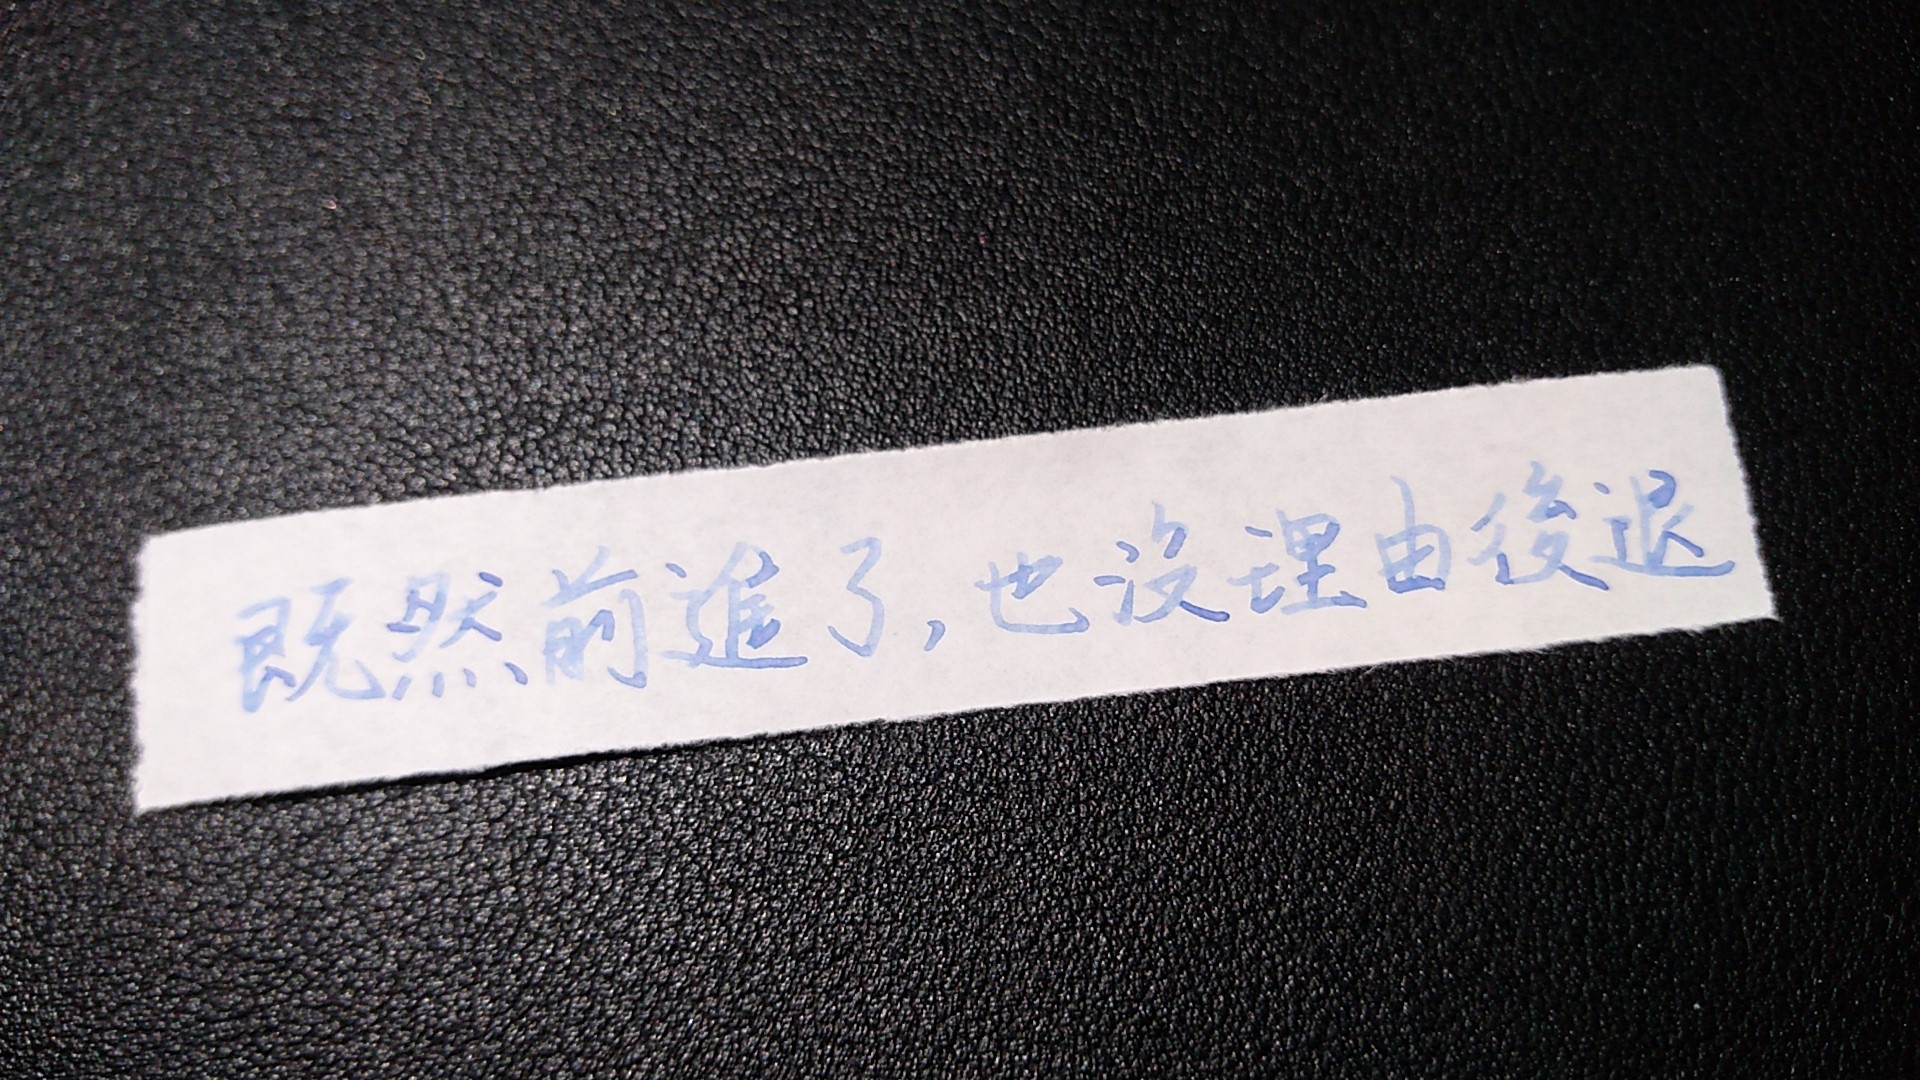 既然前進了,也沒理由後退